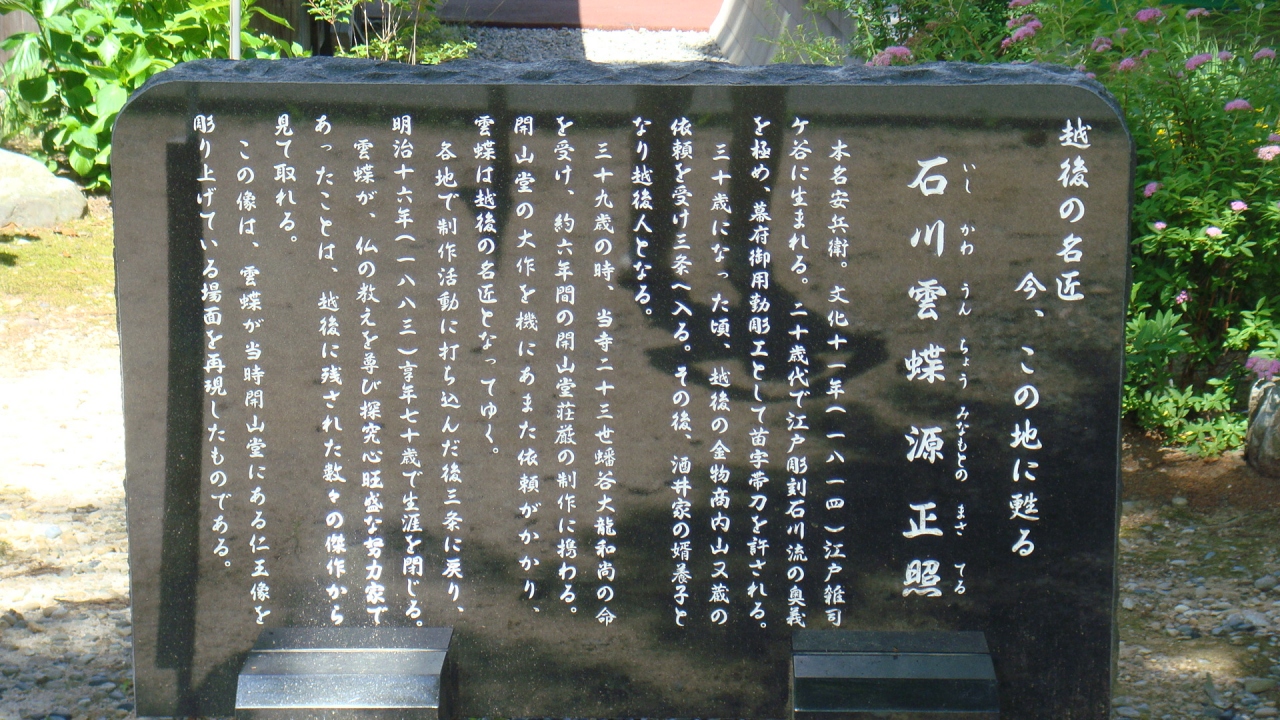 越後の名匠
今、この地に甦る
いし かわ うん ちょう みなもとの まさ てる
石川雲蝶源正照
本名安兵衛。文化十一年(一八一四)江戸雑司
ケ谷に生まれる。二十歳代で江戸彫刻石川流の奥義
を極め、幕府御用勤彫工として苗字帯刀を許される。
三十歳になった頃、越後の金物商内山又蔵の
依頼を受け三条へ入る。その後、酒井家の婿養子と
なり越後人となる。
三十九歳の時、当寺二十三世蟠谷大龍和尚の命
を受け、約六年間の開山堂荘厳の制作に携わる。
開山堂の大作を機にあまた依頼がかかり、
雲蝶は越後の名匠となってゆく。
各地で制作活動に打ち込んだ後三条に戻り、
明治十六年(一八八三)享年七十歳で生涯を閉じる。
雲蝶が、仏の教えを尊び探究心旺盛な努力家で
あったことは、越後に残された数々の傑作から
見て取れる。
この像は、雲蝶が当時開山堂にある仁王像を
彫り上げている場面を再現したものである。